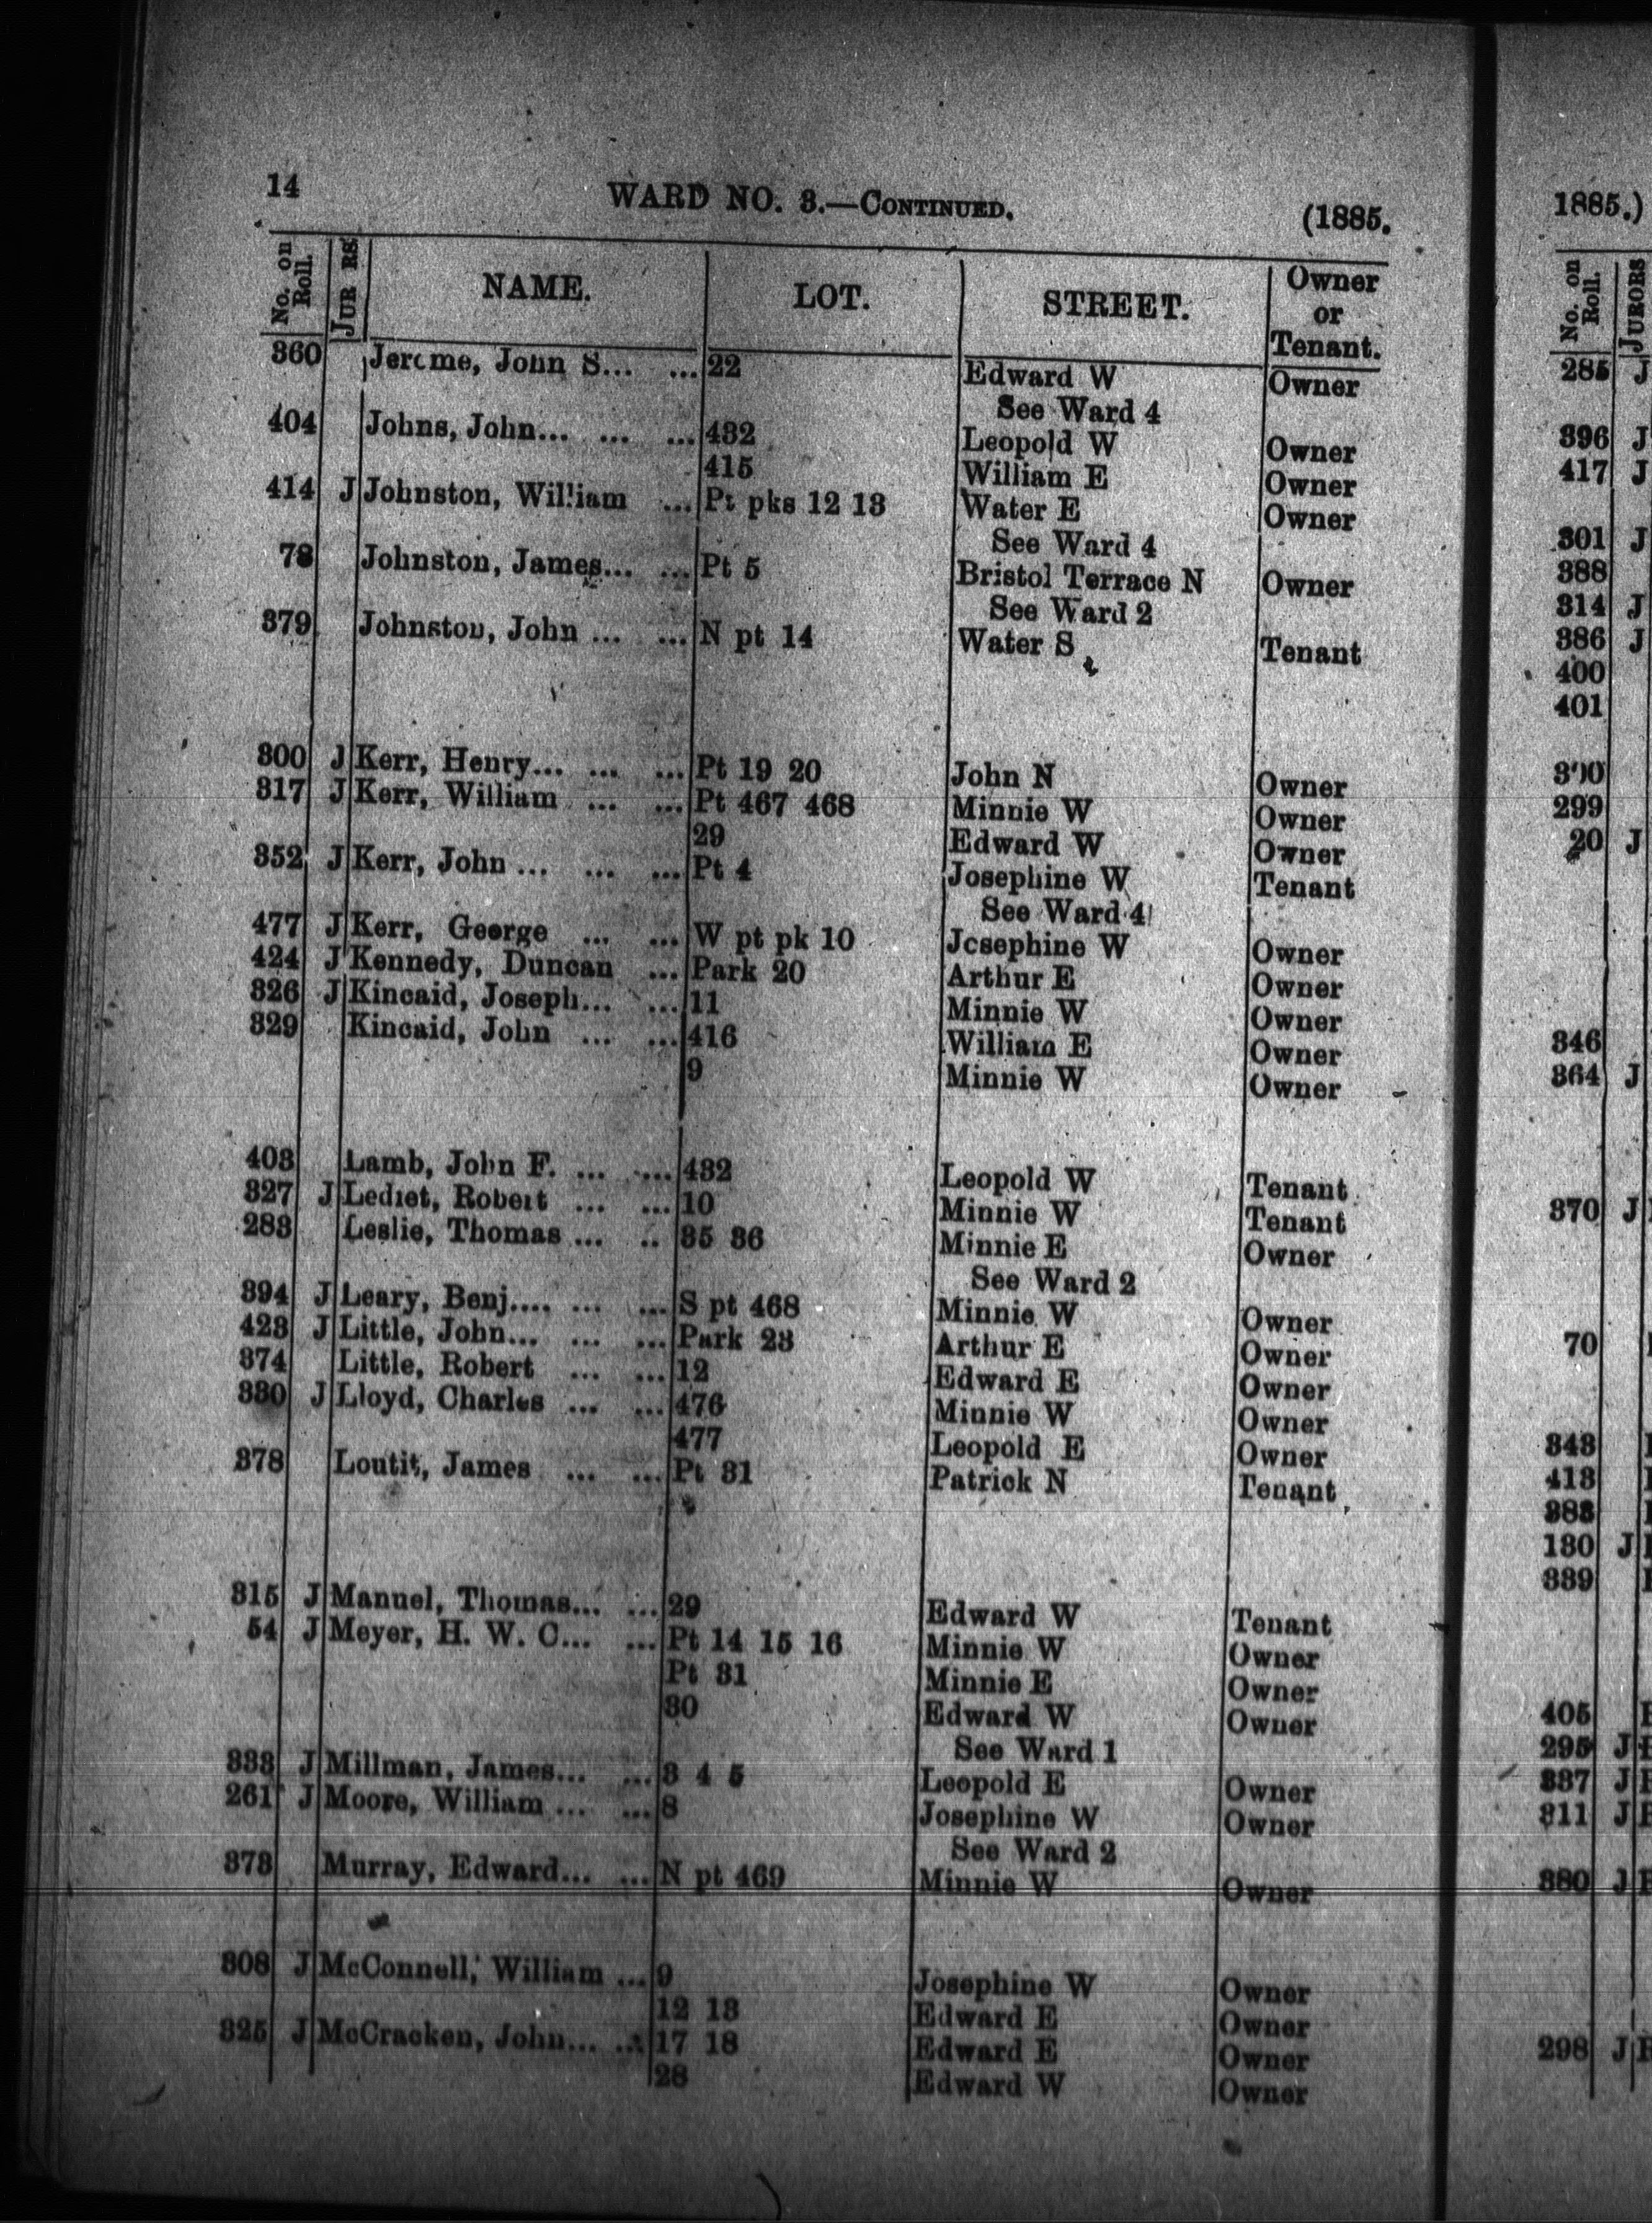 14 WARD NO. 3.—CONTINUED. (1885.
No. on Roll. JUR RS NAME. LOT. STREET. Owner or Tenant.
360 Jerome, John S... ... 22 Edward W Owner
See Ward 4
404 Johns, John... ... ... 432 Leopold W Owner
415 William E Owner
414 J Johnston, William ... Pt pks 12 13 Water E Owner
See Ward 4
78 Johnston, James... ... Pt 5 Bristol Terrace N Owner
See Ward 2
379 Johnston, John ... ... N pt 14 Water S Tenant
300 J Kerr, Henry... ... ... Pt 19 20 John N Owner
317 J Kerr, William ... ... Pt 467 468 Minnie W Owner
29 Edward W Owner
352 J Kerr, John ... ... ... Pt 4 Josephine W Tenant
See Ward 4
477 J Kerr, George ... ... W pt pk 10 Josephine W Owner
424 J Kennedy, Duncan ... Park 20 Arthur E Owner
326 J Kincaid, Joseph... ... 11 Minnie W Owner
329 Kincaid, John ... ... 416 William E Owner
9 Minnie W Owner
403 Lamb, John F. ... ... 432 Leopold W Tenant
327 J Lediet, Robert ... ... 10 Minnie W Tenant
283 Leslie, Thomas ... .. 35 36 Minnie E Owner
See Ward 2
394 J Leary, Benj.... ... ... S pt 468 Minnie W Owner
423 J Little, John... ... ... Park 23 Arthur E Owner
374 Little, Robert ... ... 12 Edward E Owner
330 J Lloyd, Charles ... ... 476 Minnie W Owner
477 Leopold E Owner
378 Loutit, James ... ... Pt 31 Patrick N Tenant
315 J Manuel, Thomas... ... 29 Edward W Tenant
54 J Meyer, H. W. C... ... Pt 14 15 16 Minnie W Owner
Pt 31 Minnie E Owner
30 Edward W Owner
See Ward 1
338 J Millman, James... ... 3 4 5 Leopold E Owner
261 J Moore, William ... ... 8 Josephine W Owner
See Ward 2
373 Murray, Edward... ... N pt 469 Minnie W Owner
308 J McConnell, William ... 9 Josephine W Owner
12 13 Edward E Owner
325 J McCracken, John... ... 17 18 Edward E Owner
28 Edward W Owner
1885.)
No. on Roll. JURORS
285 J
396 J
417 J
301 J
388
314 J
386 J
400
401
299
20 J
346
364 J
370 J
70
343
413
130 J
339
405
295 J
337 J
311 J
380 J
298 J